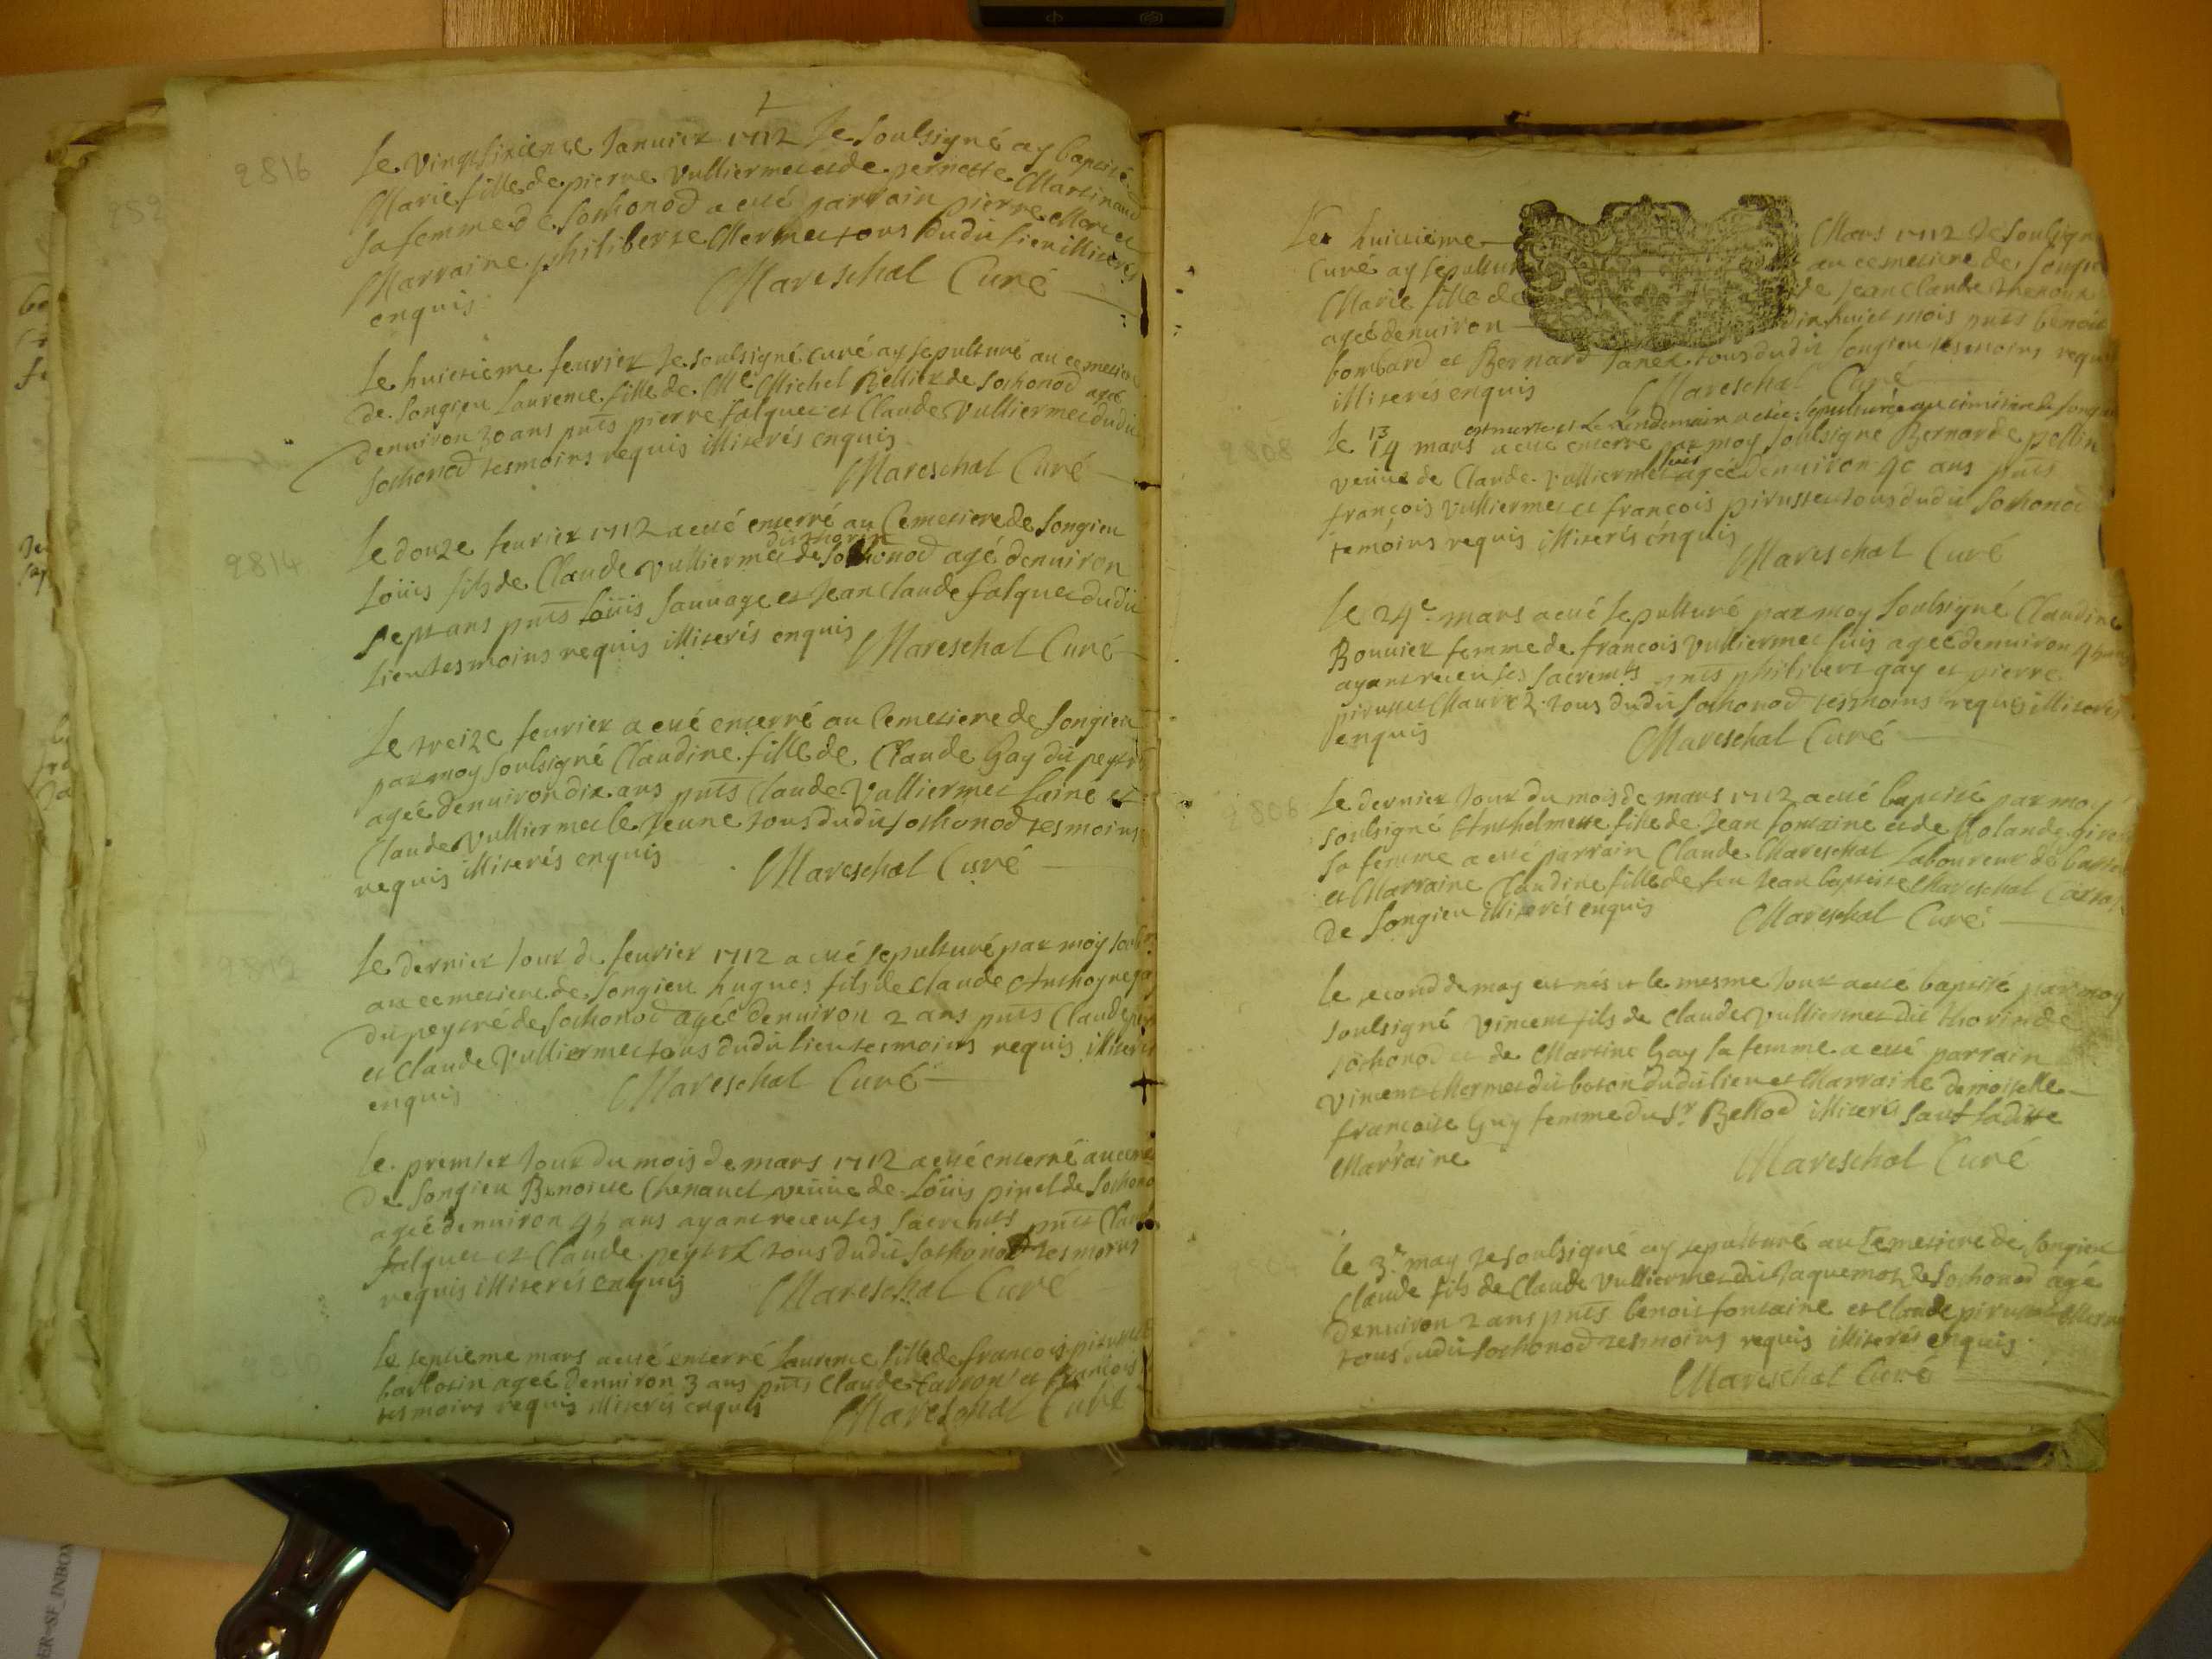 Le vingtsixieme Januier 1712 Je soulsigné ay baptisé
Marie fille de pierre Vulliermet et de pernette Martinand
sa femme de sothonod a esté parrain pierre Mermet
Marraine philiberte Mermet tous dudit lieu illiterés
enquis Mareschal Curé
2816
Le huictieme feurier Je soulsigné curé ay sepulturé au cemetiere
de songieu Laurence fille de Me Michel Rellier de sothonod agée
denuiron 20 ans pnts pierre falquet et Claude Vulliermet dudit
sothonod tesmoins requis illiterés enquis
Mareschal Curé
Le douze feurier 1712 a esté enterré au Cemetiere de songieu
dit thorin
Loüis fils de Claude Vulliermet de sothonod agé denuiron
sept ans pnts Loüis sauuage et Jean Claude falquet dudit
lieu tesmoins requis illiterés enquis Mareschal Curé
2814
Le treize feurier a esté enterré au Cemetiere de songieu
par moy soulsigné Claudine fille de Claude Gay dit peytré
agée denuiron dix ans pnts Claude Vulliermet lainé et
Claude Vulliermet le Jeune tous dudit sothonod tesmoins
requis illiterés enquis Mareschal Curé
Le dernier Jour de feurier 1712 a esté sepulturé par moy
au cemetiere de songieu hugues fils de Claude Anthoyne
du peytré de sothonod agée denuiron 2 ans pnts Claude
et Claude Vulliermet tous dudit lieu tesmoins requis illiterés
enquis Mareschal Curé
2812
Le premier Jour du mois de mars 1712 a esté enterré au
de songieu Benoite Chenauel veüue de Loüis pinel de
agée denuiron 45 ans ayant receu ses sacrements pnts
falquet et Claude peytré tous dudit sothonod tesmoins
requis illiterés enquis Mareschal Curé
Le septieme mars a esté enterré Laurence fille de francois
agée denuiron 3 ans pnts Claude Carron et francois
tesmoins requis illiterés enquis Mareschal Curé
Le huictieme Mars 1712 Je soulsigné
Curé ay sepulturé au cemetiere de
Marie fille de de Jean Claude
agée denuiron dix huict mois pnts benoit
bombard et Bernard Janet tous dudit songieu tesmoins requis
illiterés enquis Mareschal Curé
est morte et Le Lendemain a esté sepulturée au cimitiere de
Le 13 14 mars a esté enterré par moy soulsigné Bernarde pollin
veüue de Claude Vulliermet agée denuiron 40 ans pnts
francois Vulliermet et francois pirusset tous dudit sothonod
temoins requis illiterés enquis
Mareschal Curé
2808
Le 24e mars a esté sepulturé par moy soulsigné Claudine
Bouuier femme de francois Vulliermet agée denuiron
ayant receu ses sacremts pnts philibert gay et pierre
pirusset tous dudit sothonod tesmoins requis illiterés
enquis Mareschal Curé
Le dernier Jour du mois de mars 1712 a esté baptisé par moy
soulsigné Anthelmette fille de Jean fontaine et de Rolande
sa femme a esté parrain Claude Mareschal Laboureur de
et Marraine Claudine fille de feu Jean baptiste Mareschal
de songieu illiterés enquis Mareschal Curé
2806
Le second de may est nés et le mesme Jour a esté baptisé par moy
soulsigné vincent fils de Claude Vulliermet dit thorin de
sothonod et de Martine Gay sa femme a esté parrain
vincent Mermet dit boton dudit lieu et Marraine demoiselle
francoise Guy femme du Sr Bellod illiterés sauf ladite
Marraine Mareschal Curé
Le 3e may Je soulsigné ay sepulturé au Cemetiere de songieu
Claude fils de Claude Vulliermet dit Jaquemot de sothonod agé
denuiron 2 ans pnts benoit fontaine et Claude
tous dudit sothonod tesmoins requis illiterés enquis
Mareschal Curé